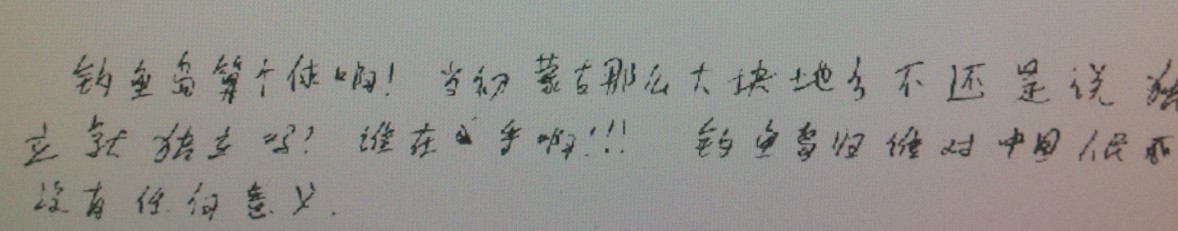 钓鱼岛算个俅啊！当初蒙古那么大块土地多不还是说独
立就独立吗？谁在乎啊！！！钓鱼岛归谁对中国人民而
没有任何意义．